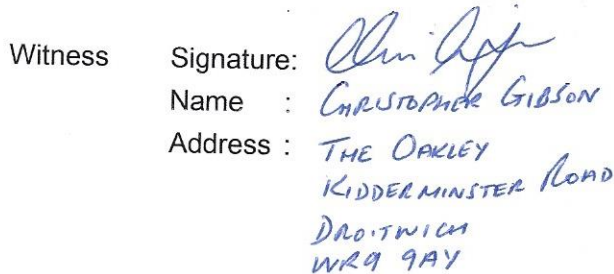 Witness Signature: Chris Gibson
Name : CHRISTOPHER GIBSON
Address : THE OAKLEY
KIDDERMINSTER ROAD
DROITWICH
WR9 9AY